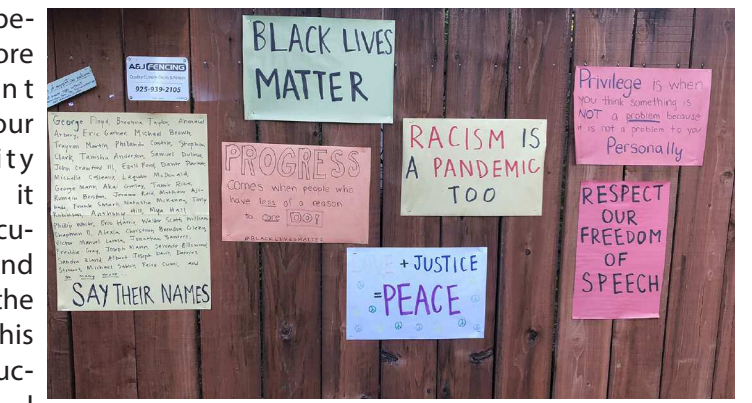 pe-
ore
n t
our
i t y
it
cu-
nd
the
his
uc-
A&J FENCING
925-939-2105
BLACK LIVES
MATTER
George Floyd, Breonna Taylor, Ahmaud
Arbery, Eric Garner, Michael Brown,
Trayvon Martin, Philando Castile, Stephon
Clark, Tanisha Anderson, Samuel Dubose,
John Crawford III, Ezell Ford, Dante Parker,
Michelle Cusseaux, Laquan McDonald,
George Mann, Akai Gurley, Tamir Rice,
Rumain Brisbon, Jerame Reid, Matthew Aji-
bade, Frank Smart, Natasha McKenna, Tony
Robinson, Anthony Hill, Mya Hall,
Phillip White, Eric Harris, Walter Scott, William
Chapman II, Alexia Christian, Brendon Glenn,
Victor Manuel Larosa, Jonathan Sanders,
Freddie Gray, Joseph Mann, Salvado Ellswood,
Sandra Bland, Albert Joseph Davis, Darrius
Stewart, Michael Sabbie, and
so many more
SAY THEIR NAMES
PROGRESS
comes when people who
have less of a reason
to care DO!
#BLACKLIVESMATTER
RACISM IS
A PANDEMIC
TOO
+ JUSTICE
= PEACE
Privilege is when
you think something is
NOT a problem because
it is not a problem to you
Personally
RESPECT
OUR
FREEDOM
OF
SPEECH